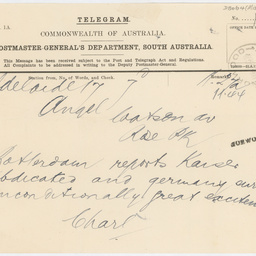 TELEGRAM.
COMMONWEALTH OF AUSTRALIA.
POSTMASTER-GENERAL'S DEPARTMENT, SOUTH AUSTRALIA
This Message has been received subject to the Post and Telegraph Act and Regulations.
All Complaints to be addressed in writing to the Deputy Postmaster-General.
Station from, No. of Words, and Check.
delaide 17 7
11.44
Angel
Watson av
Rose Pk
otterdam reports Kaiser
bdicated and germany sur
nconditionally great excitem
Chart